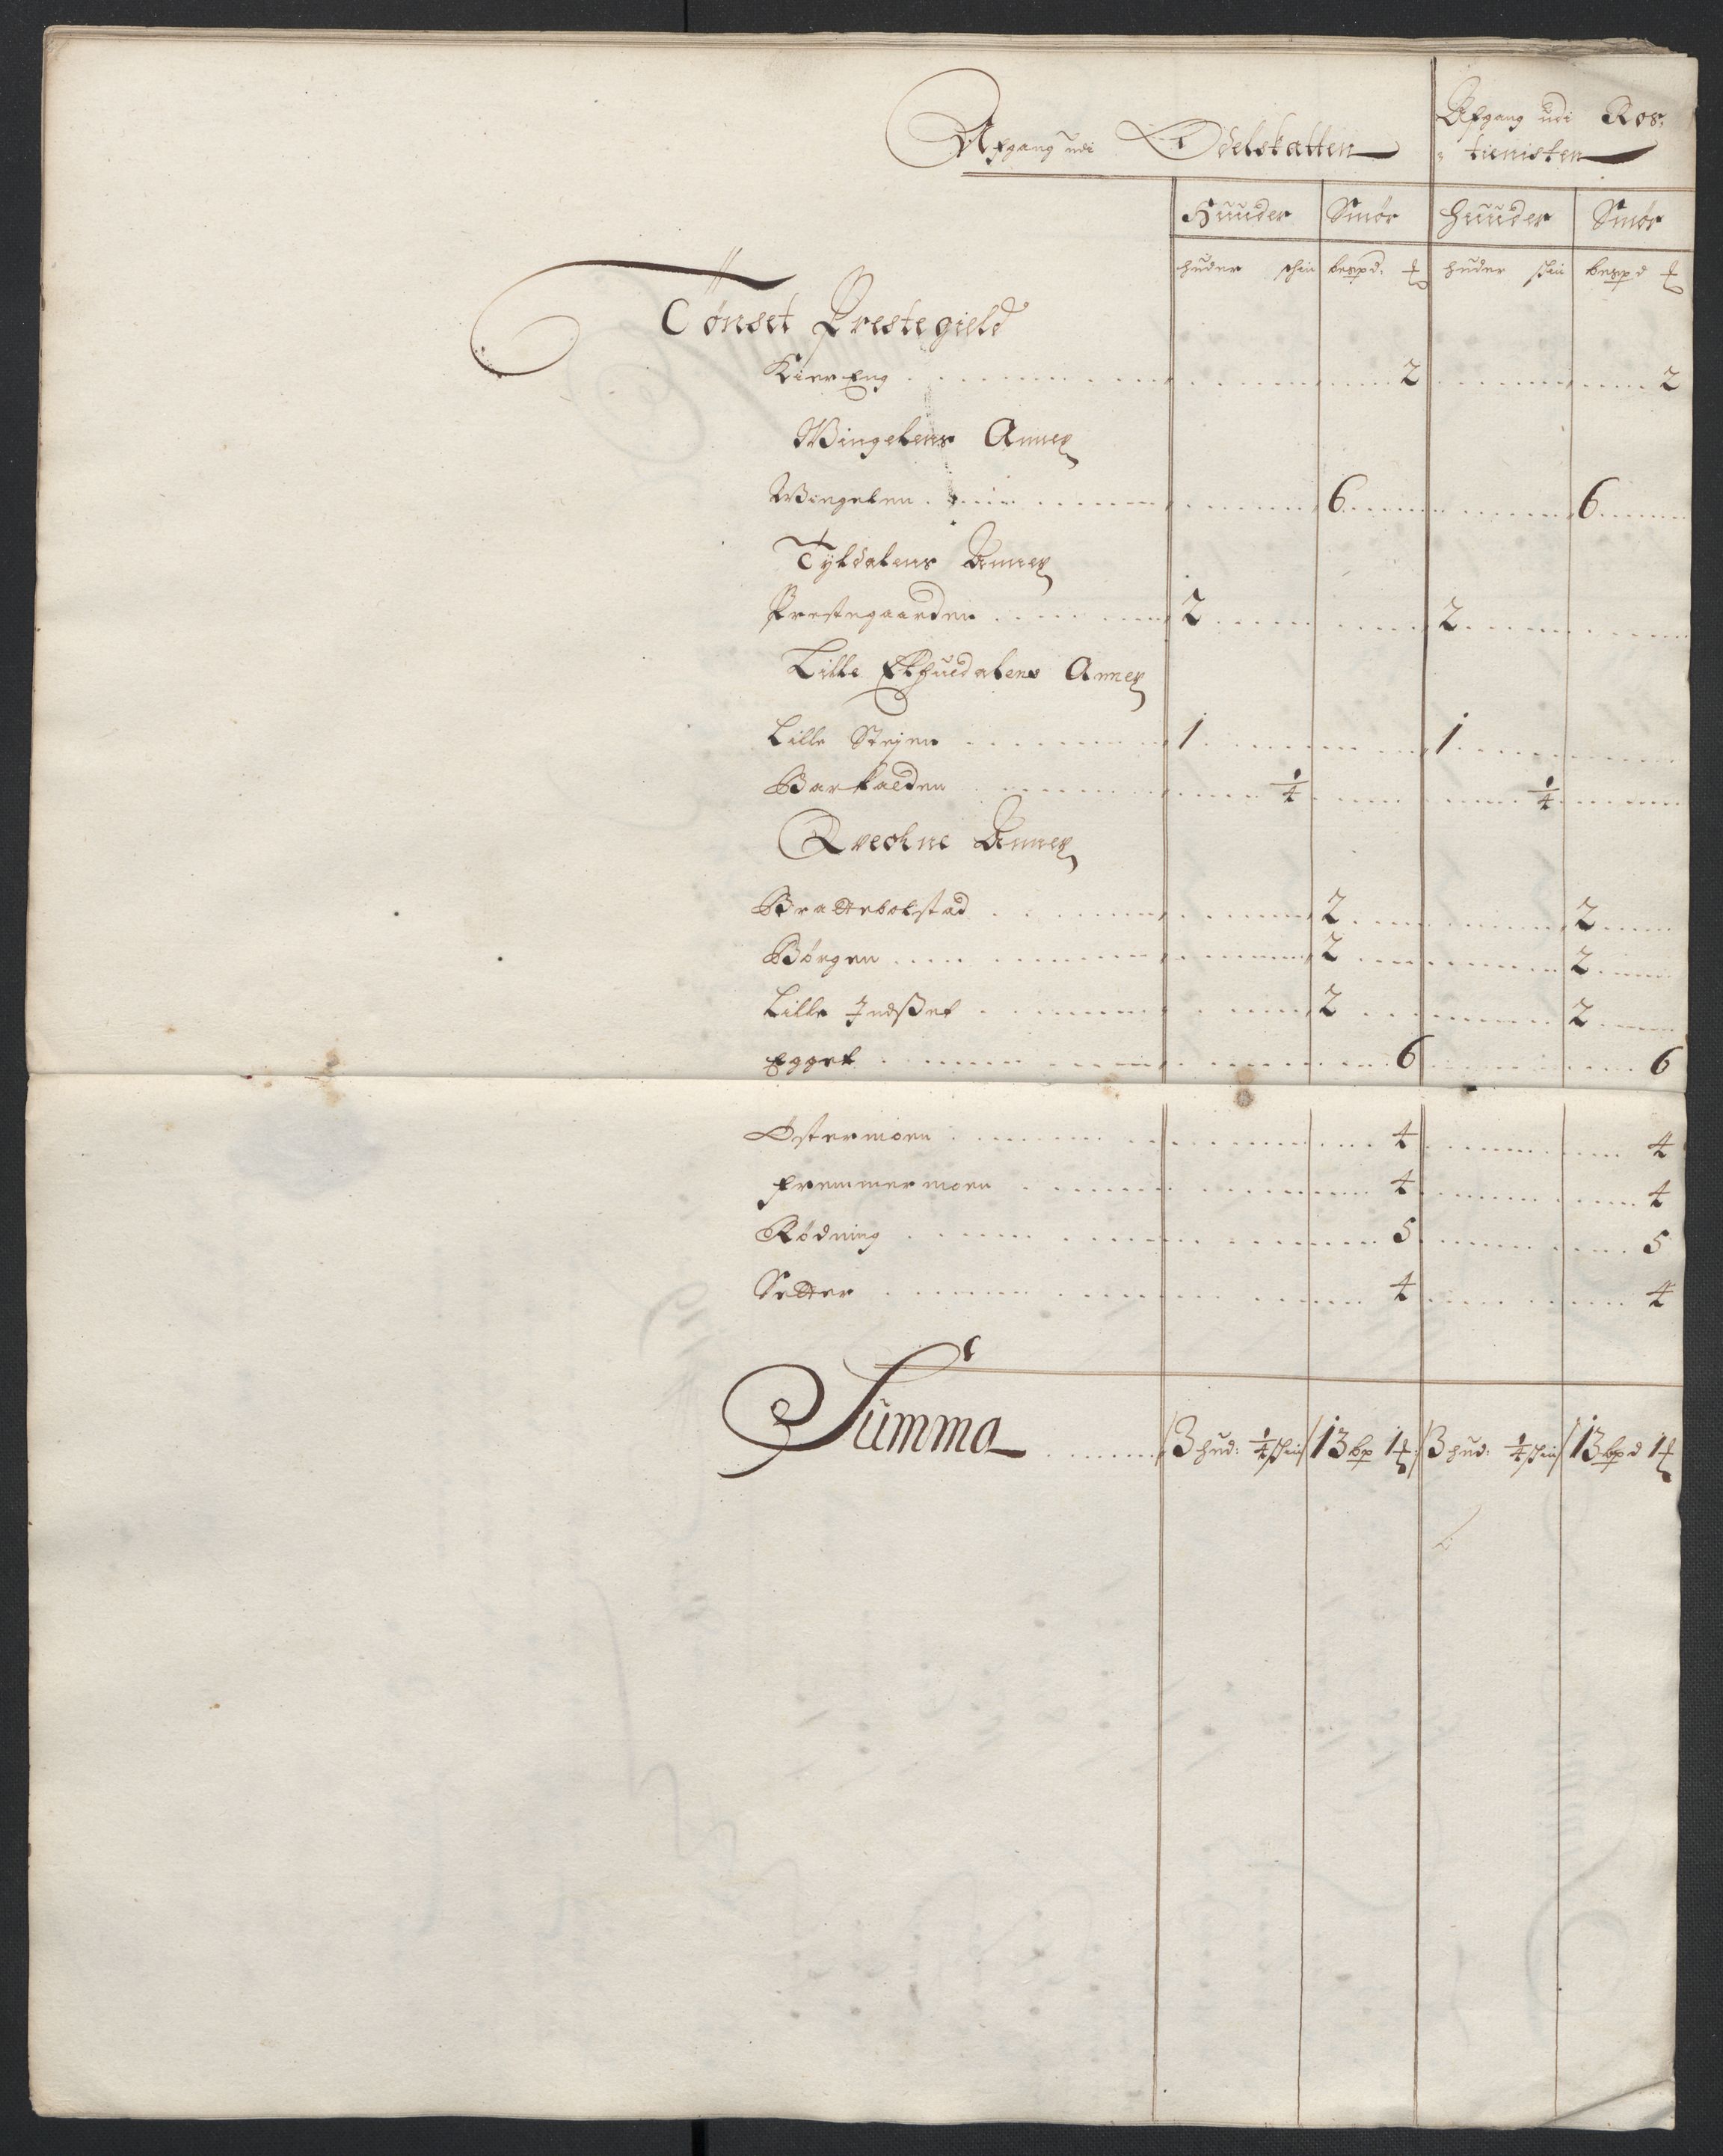 Afgang udi Odelskatten
Afgang udi Ros-
tienisten
Huuder Smør Huuder Smør
huder skin bespd: ℔ huder skin bespd ℔
Tønset Prestegield
Kiereng . . . 2 . . . 2
Wingelens Annex
Wingelen . . . 6 . . . 6
Tyldalens Annex
Prestegaarden . . . 2 . . . 2
Lille Elfuedalens Annex
Lille Stejen . . . 1 . . . 1
Barkalden . . . 1/4 . . . 1/4
Qvechne Annex
Brattebolstad . . . 2 . . . 2
Børgen . . . 2 . . . 2
Lille Indset . . . 2 . . . 2
Egget . . . 6 . . . 6
Østermoen . . . 4 . . . 4
fremmermoen . . . 4 . . . 4
Rødning . . . 5 . . . 5
Setter . . . 4 . . . 4
Summa . . . 3 hud: 1/4 skin 13 bp 1 ℔ 3 hud: 1/4 skin 13 bpd 1 ℔